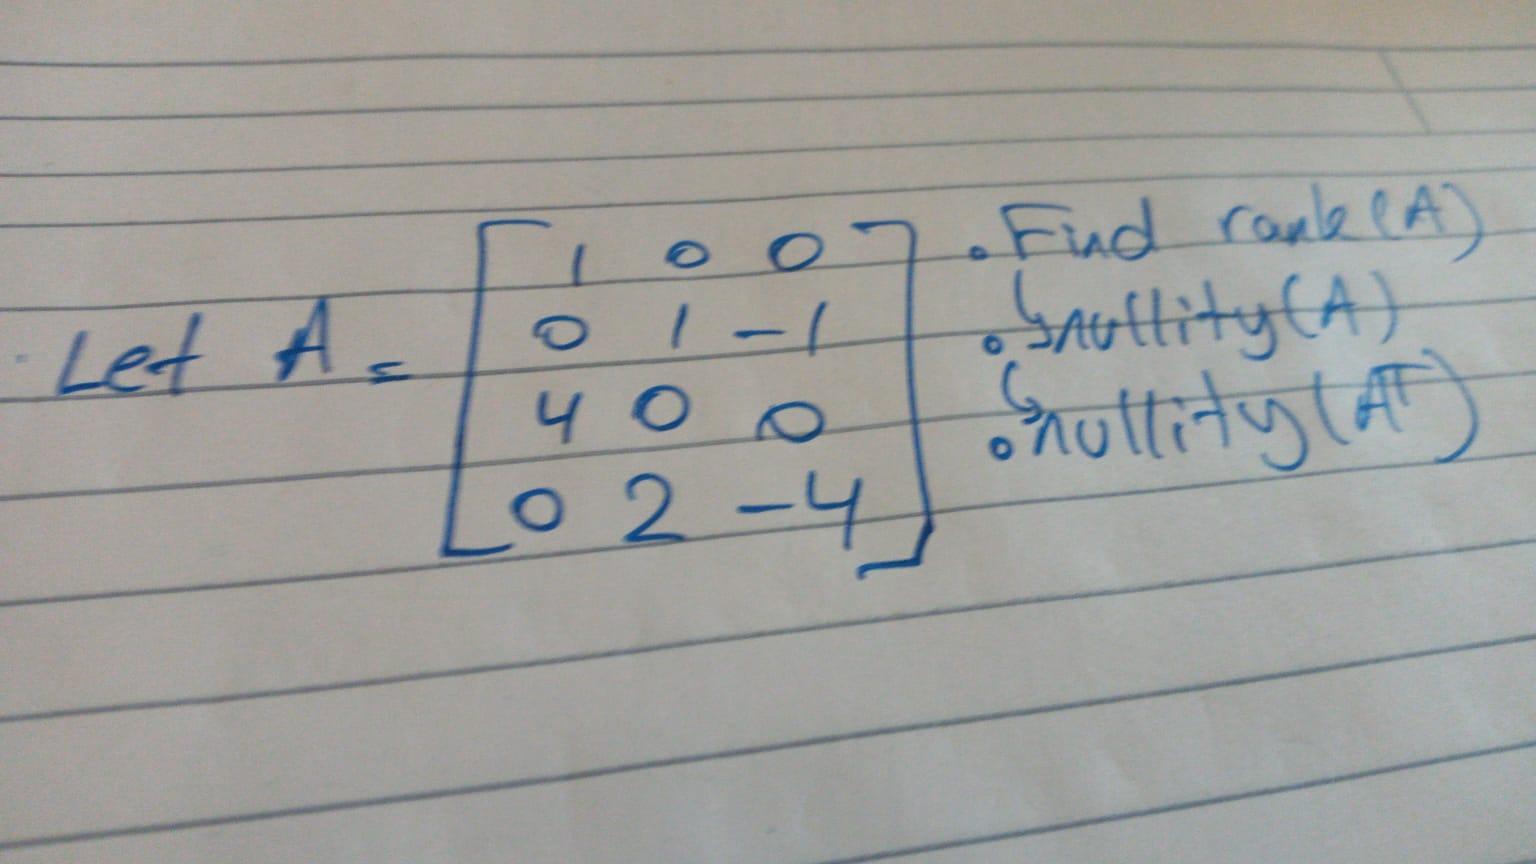 Let A = [ 1 0 0 . Find rank(A)
0 1 -1 . ↳ nullity(A)
4 0 0 . ↳ nullity(Aᵀ)
0 2 -4 ]